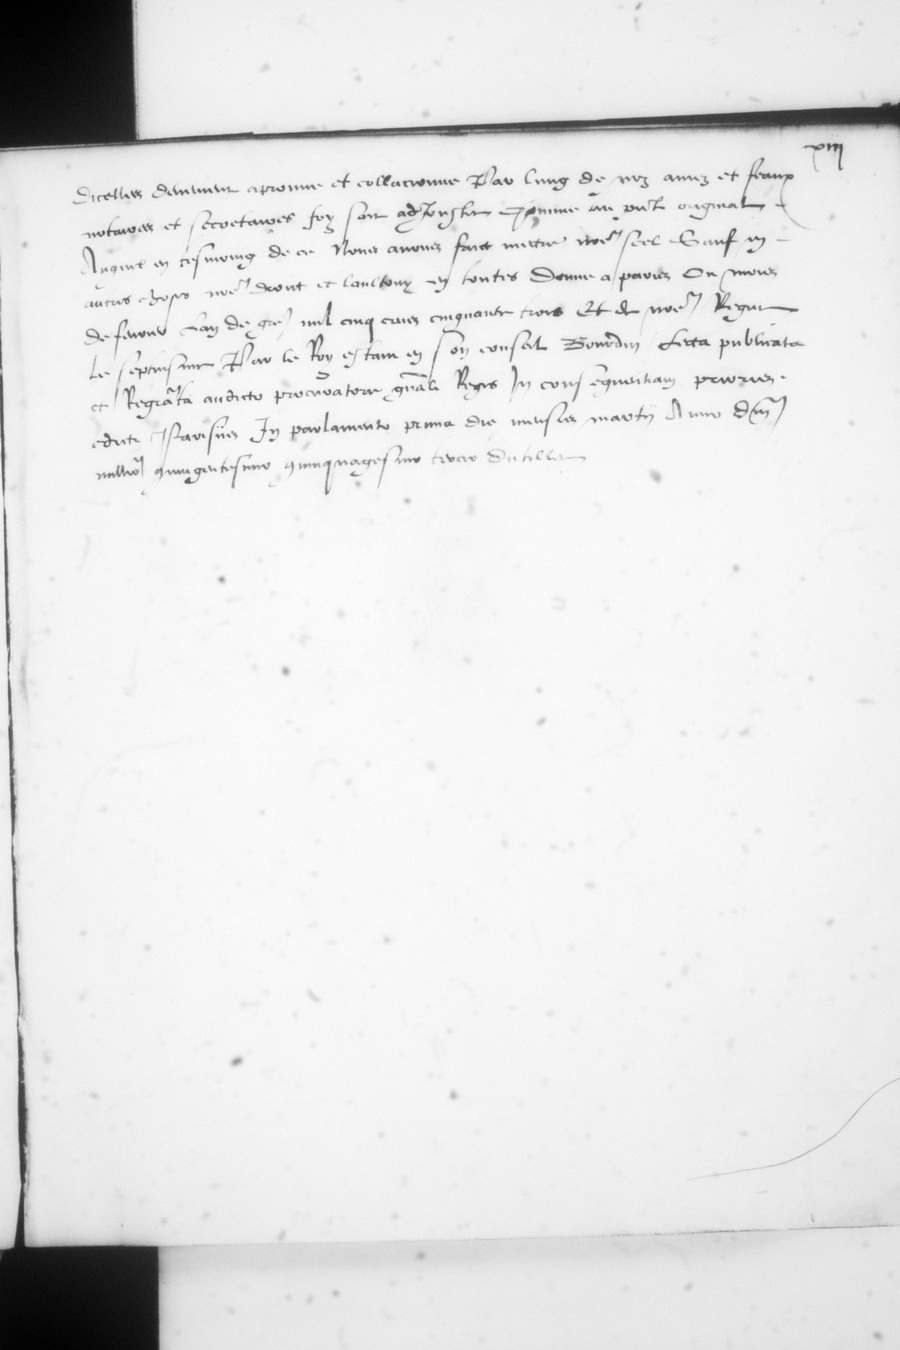 xiii
dicelles deuement a promue et collacionne Par lung de noz amez et feaux
notaires et secretaires foy soit adjoustee comme au pnt original
Auquel en tesmoing de ce Nous avons faict mectre nre scel Sauf en
autres choses nre droit et lautruy en toutes Donne a paris Ou mois
de fevrier Lan de grace mil cinq cens cinquante trois Et de nre Regne
Le septiesme Par le Roy estant en son conseil Bourdin Lecta publicata
et Regrata audito procuratore gnali Regis In consequentiam prioris
edicti Parisiis In parlamento prima die mensis martii Anno dni
millio quingentesimo quinquagesimo tercio Du tillet